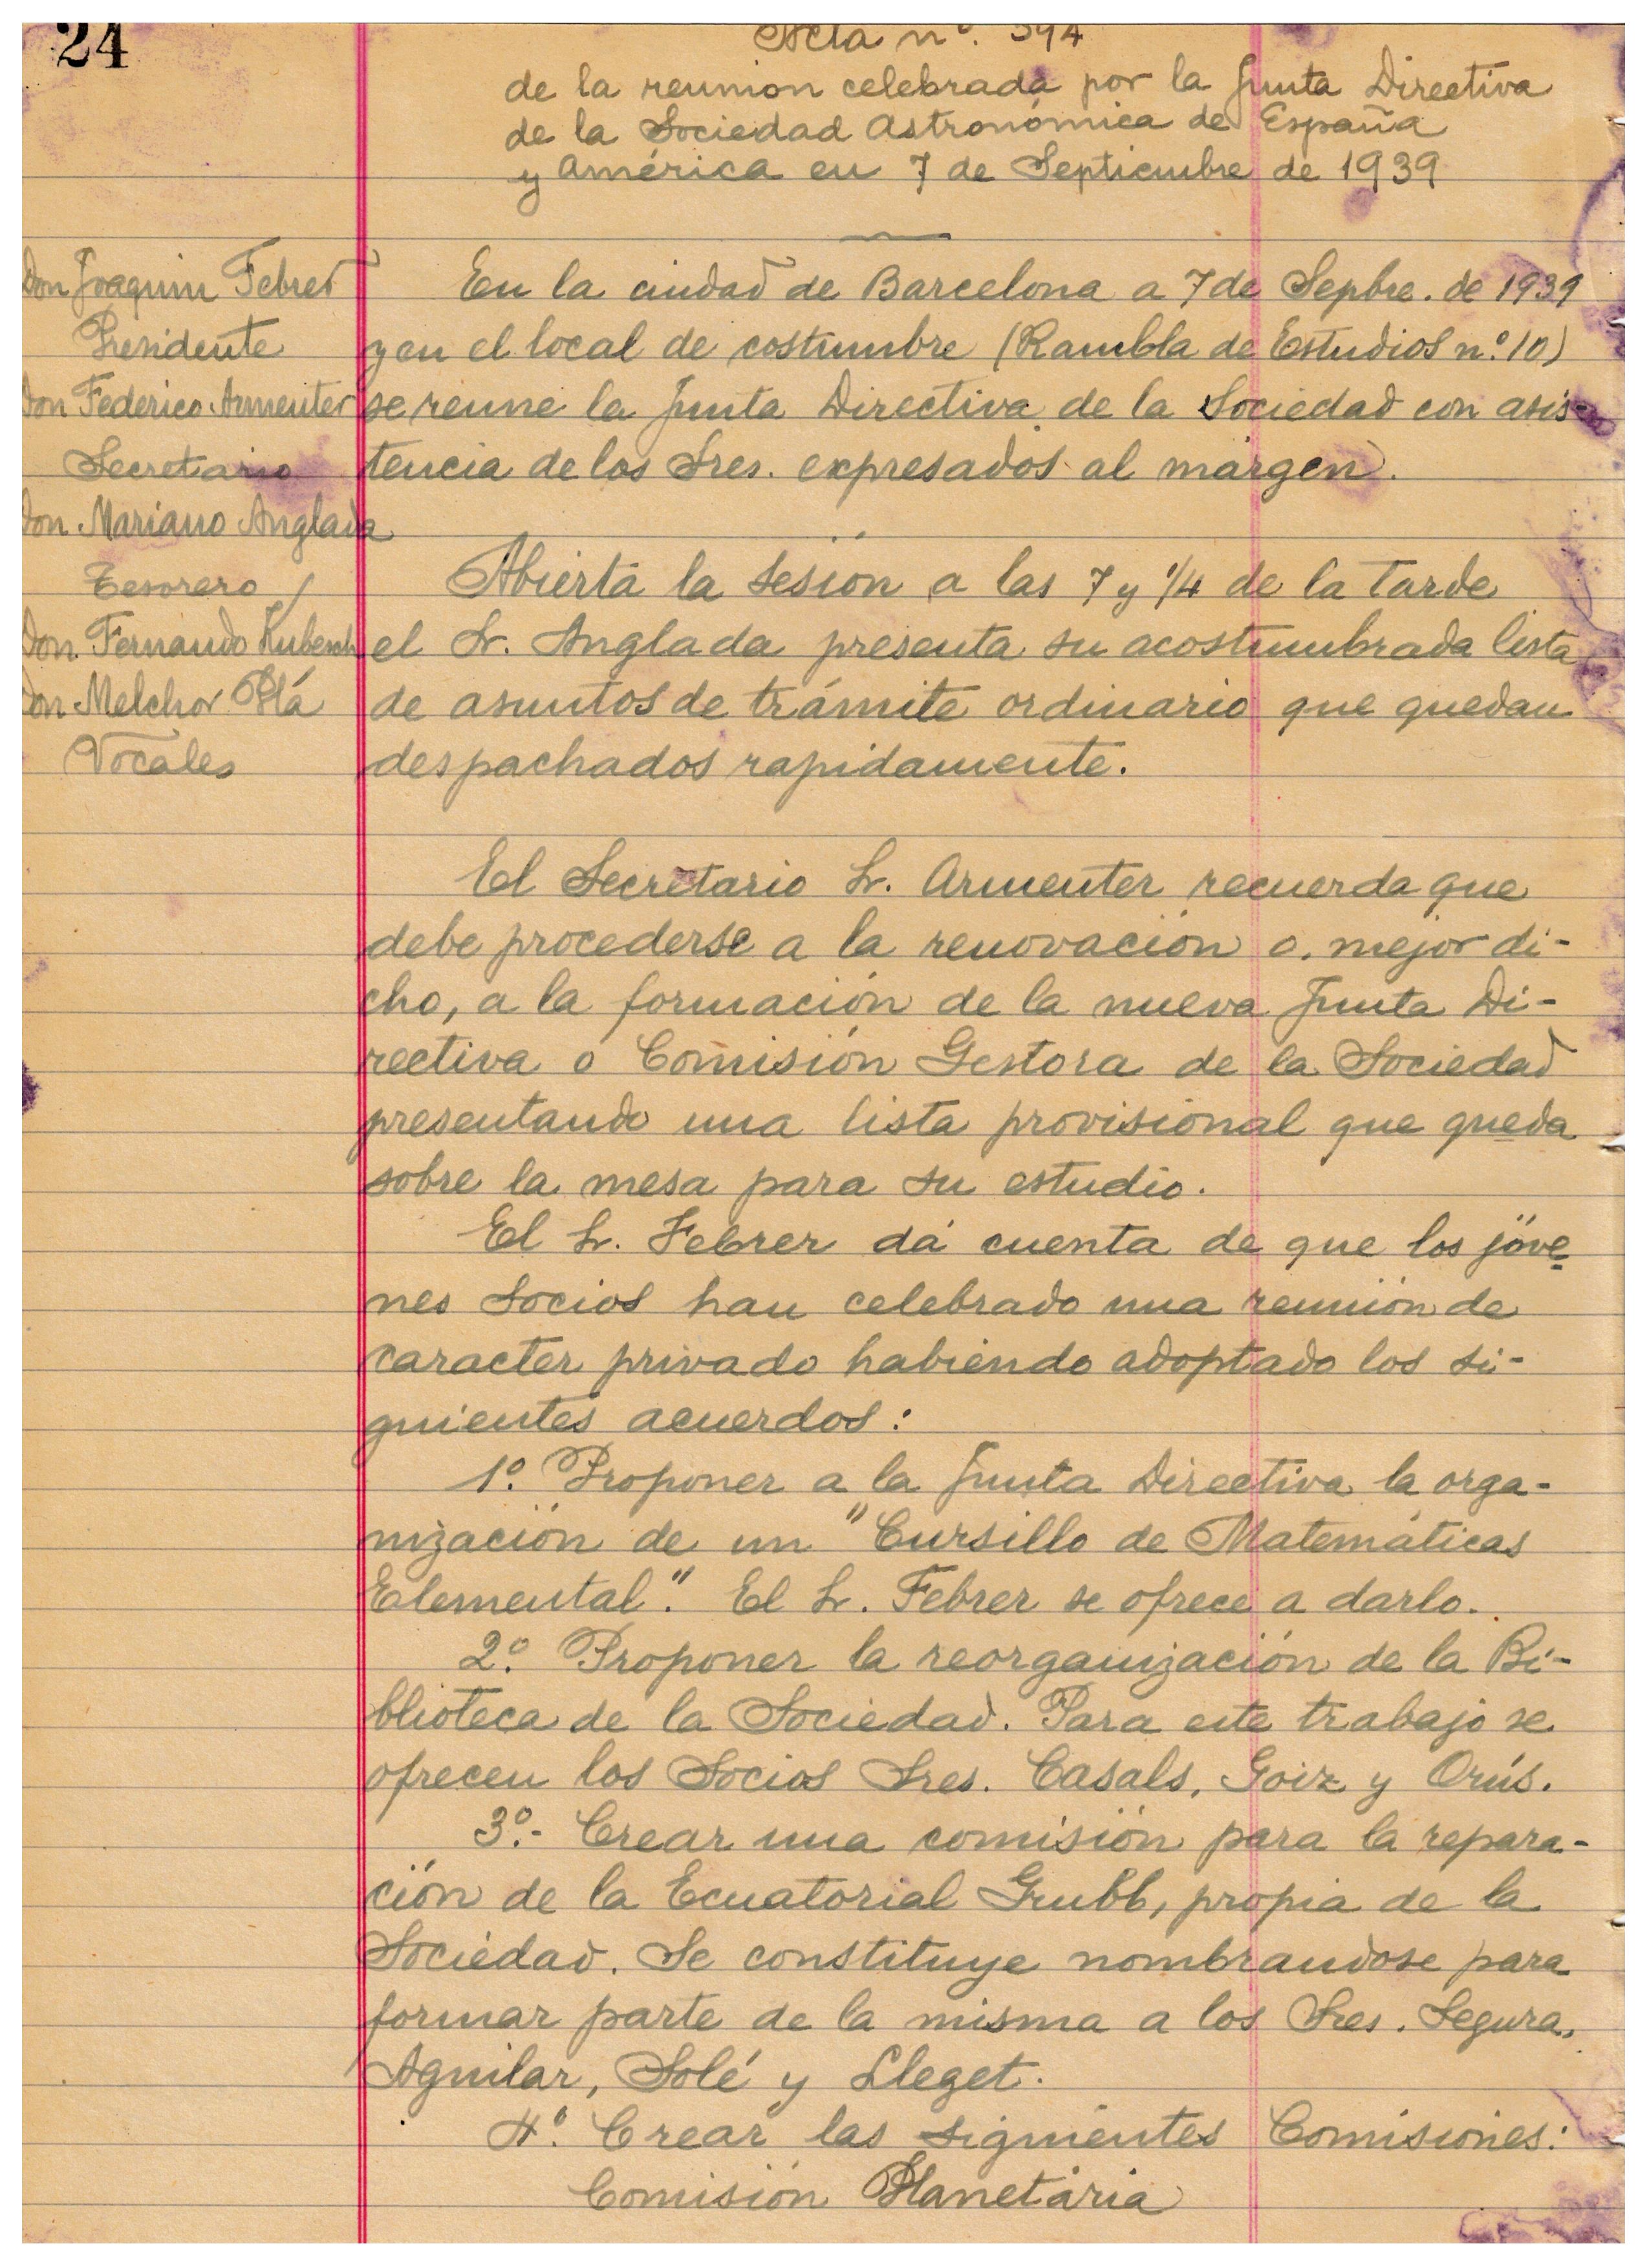 24
Acta nº. 394
de la reunion celebrada por la Junta Directiva
de la Sociedad Astronómica de España
y América en 7 de Septiembre de 1939
Don Joaquin Febrer
Presidente
Don Federico Armenter
Secretario
Don Mariano Anglada
Tesorero
Don Fernando Kubesch
Don Melchor Plá
Vocales
En la ciudad de Barcelona a 7 de Sepbre. de 1939
y en el local de costumbre (Rambla de Estudios n.º 10)
se reune la Junta Directiva de la Sociedad con asis-
tencia de los Sres. expresados al márgen.
Abierta la sesión a las 7 y 1/4 de la tarde
el Sr. Anglada presenta su acostumbrada lista
de asuntos de trámite ordinario que quedan
despachados rapidamente.
El Secretario Sr. Armenter recuerda que
debe procederse a la renovación o, mejor di-
cho, a la formación de la nueva Junta Di-
rectiva o Comisión Gestora de la Sociedad
presentando una lista provisional que queda
sobre la mesa para su estudio.
El Sr. Febrer dá cuenta de que los jóve-
nes Socios han celebrado una reunión de
caracter privado habiendo adoptado los si-
guientes acuerdos:
1º. Proponer a la Junta Directiva la orga-
nización de un "Cursillo de Matemáticas
Elemental". El Sr. Febrer se ofrece a darlo.
2º. Proponer la reorganización de la Bi-
blioteca de la Sociedad. Para este trabajo se
ofrecen los Socios Sres. Casals, Goiz y Orús.
3º.- Crear una comisión para la repara-
ción de la Ecuatorial Grubb, propia de la
Sociedad. Se constituye nombrandose para
formar parte de la misma a los Sres. Segura,
Aguilar, Solé y Lleget.
4º. Crear las siguientes Comisiones:
Comisión Planetária